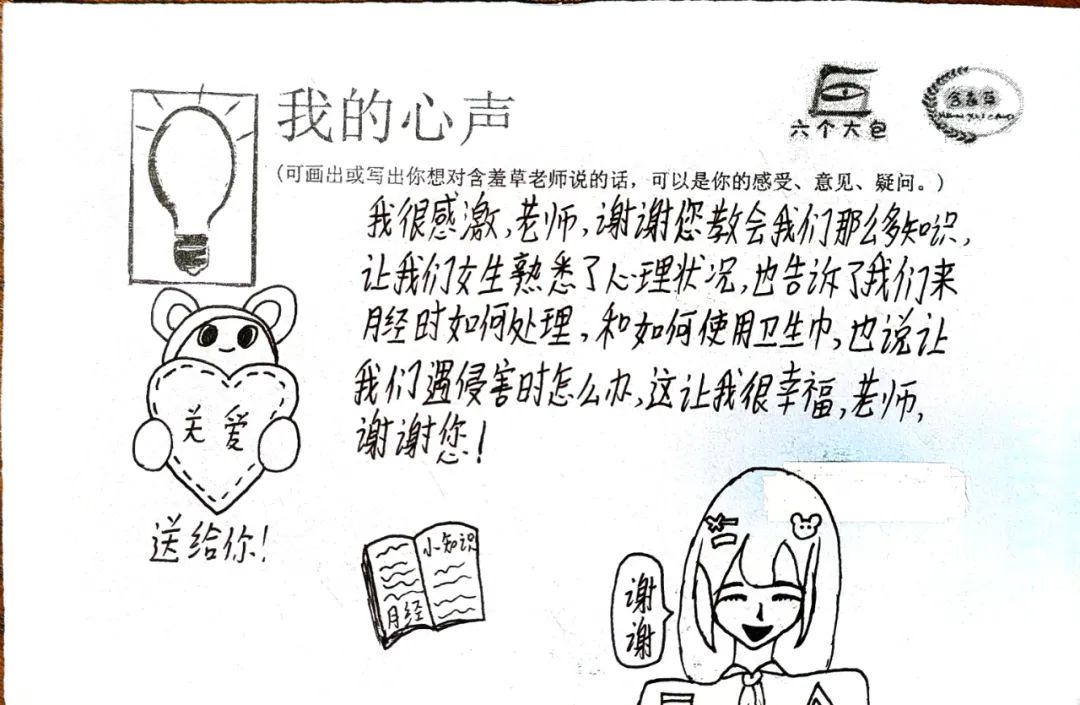 我的心声
六个大包
含羞草
HANXIUCAO
(可画出或写出你想对含羞草老师说的话，可以是你的感受、意见、疑问。)
我很感激,老师,谢谢您教会我们那么多知识,
让我们女生熟悉了心理状况,也告诉了我们来
月经时如何处理,和如何使用卫生巾,也说让
我们遇侵害时怎么办,这让我很幸福,老师,
谢谢您!
关爱
送给你!
小知识
月经
谢
谢